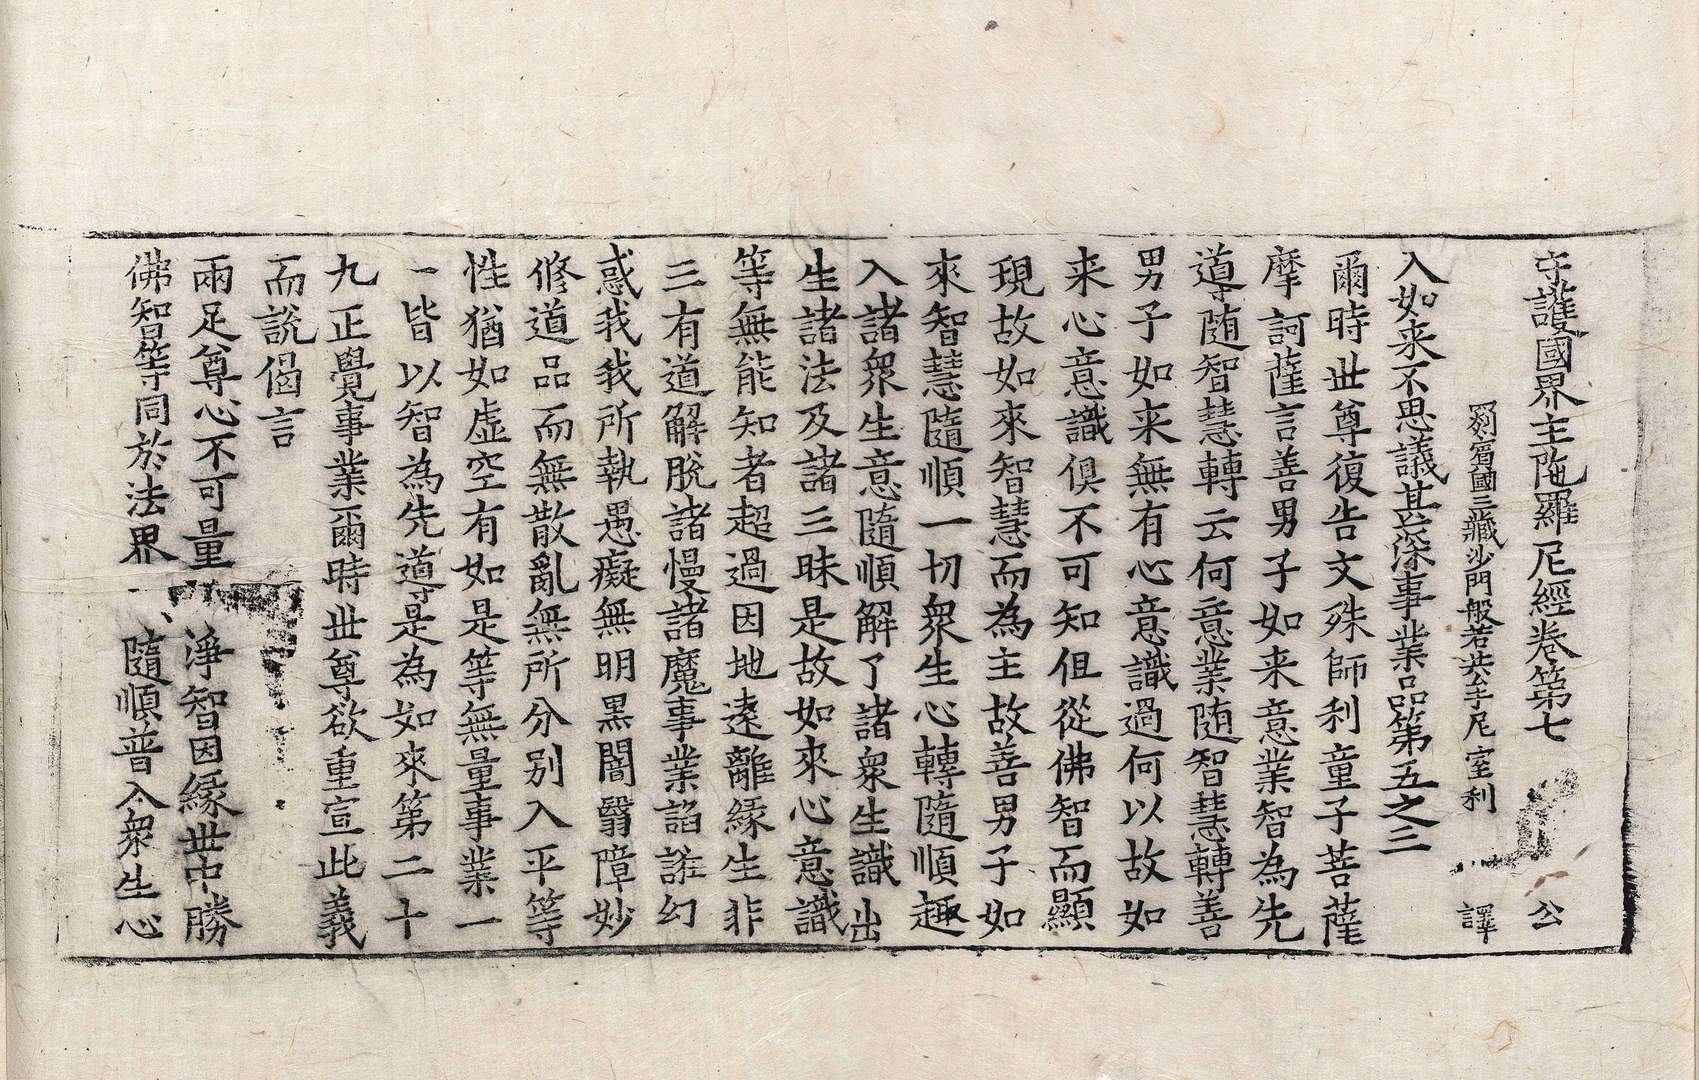 守護國界主陁羅尼經卷第七 公
罽賔國三藏沙門般若共牟尼室利 譯
入如来不思議甚深事業品第五之三
爾時世尊復告文殊師利童子菩薩
摩訶薩言善男子如来意業智為先
導随智慧轉云何意業随智慧轉善
男子如来無有心意識過何以故如
来心意識俱不可知但從佛智而顯
現故如來智慧而為主故善男子如
來智慧隨順一切衆生心轉隨順趣
入諸衆生意隨順解了諸衆生識出
生諸法及諸三昧是故如來心意識
等無能知者超過因地遠離緣生非
三有道解脫諸慢諸魔事業諂誑幻
惑我我所執愚癡無明黑闇翳障妙
修道品而無散亂無所分別入平等
性猶如虛空有如是等無量事業一
一皆以智為先導是為如來第二十
九正覺事業爾時世尊欲重宣此義
而說偈言
兩足尊心不可量 淨智因緣世中勝
佛智等同於法界 隨順普入衆生心